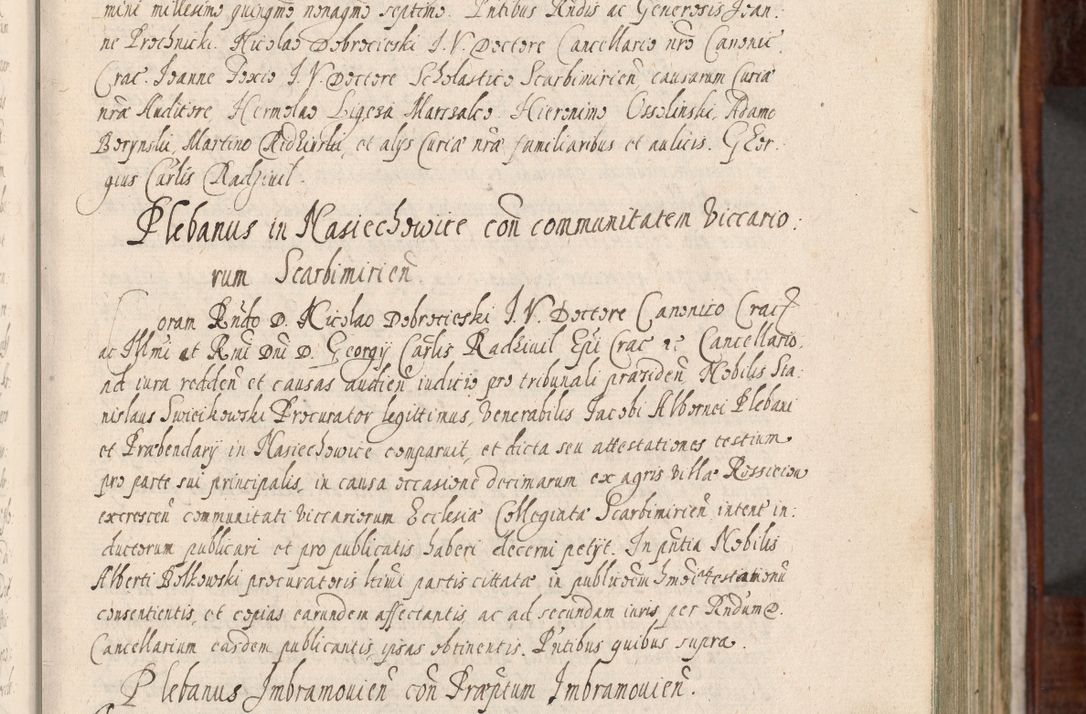 mini millesimo quingmo nonagmo septimo. Pntibus Rndis ac Generosis Joan:
ne Prochnicki. Nicolao Dobrocieski J. V. Doctore Cancellario nro Canonic
Crac. Joanne Foxio J. V. Doctore Scholastico Scarbimirien causarum Curiæ
nræ Auditore, Hermolao Ligęza Marsalco. Hieronimo Ossolinski, Adamo
Martino et alys Curiæ nræ familiaribus et aulicis. Geor:
gius Carlis Radziuil.
Plebanus in Nasiechowice con communitatem Viccario:
rum Scarbimirien
Coram Rndo D. Nicolao Dobrocieski J. V. Doctore Canonico Crac
ac Illmi et Rmi Dni D. Georgy Carlis Radziuil Epi Crac Cancellario,
ad iura redden et causas audien iudicio pro tribunali præsiden Nobilis Sta:
nislaus Swiecikowski Procurator legittimus, Venerabilis Jacobi Albornei Plebani
et Præbendary in Nasiechowice comparuit, et dicta seu attestationes testium
pro parte sui principalis, in causa occasione decimarum ex agris villæ Rossieiow
excrescen communitati Viccariorum Ecclesiæ Collegiatæ Scarbimirien intent in:
ductorum publicari et pro publicatis haberi decerni petyt. In pntia Nobilis
Alberti Bolkowski procuratoris ltimi partis cittatæ in publicoem attestationu
consentientis, et copias earundem affectantis, ac ad secundam iuris per Rndum D.
Cancellarium easdem publicantis ipsas obtinentis. Pntibus quibus supra.
Plebanus Imbramouien con Præntum Imbramouien.